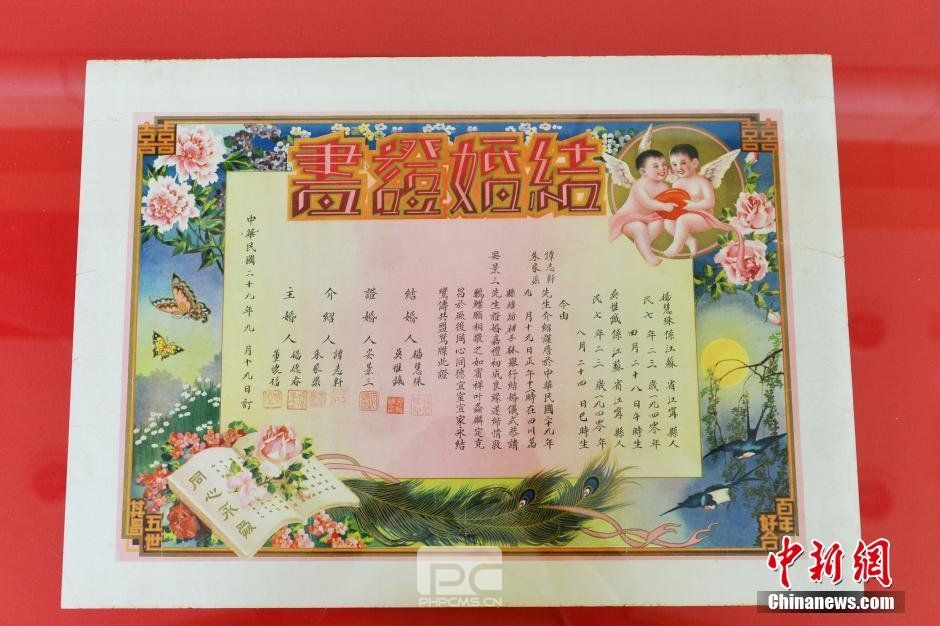 結婚證書
囍
囍
楊慧珠係江蘇省江寧縣人
民七年二三歲一九四〇年
四月二十八日午時生
吳惟誠係江蘇省江寧縣人
民七年二三歲一九四〇年
八月二十四日巳時生
今由
譚志軒
朱家渠
先生介紹謹詹於中華民國二十九年
九月十九日正午十二時在四川萬
林舉行結婚儀式恭請
晏景三先生證婚嘉禮初成良緣遂締情敦
鶼鰈願相敬之如賓祥叶螽麟定克
昌於厥後同心同德宜室宜家永結
鸞儔共盟鴛牒此證
結婚人
楊慧珠
吳惟誠
證婚人
晏景三
介紹人
譚志軒
朱家渠
主婚人
楊德春
中華民國二十九年九月十九日訂
同心永愛
五世
百年
好合
PC
PHPCMS.CN
中新網
Chinanews.com